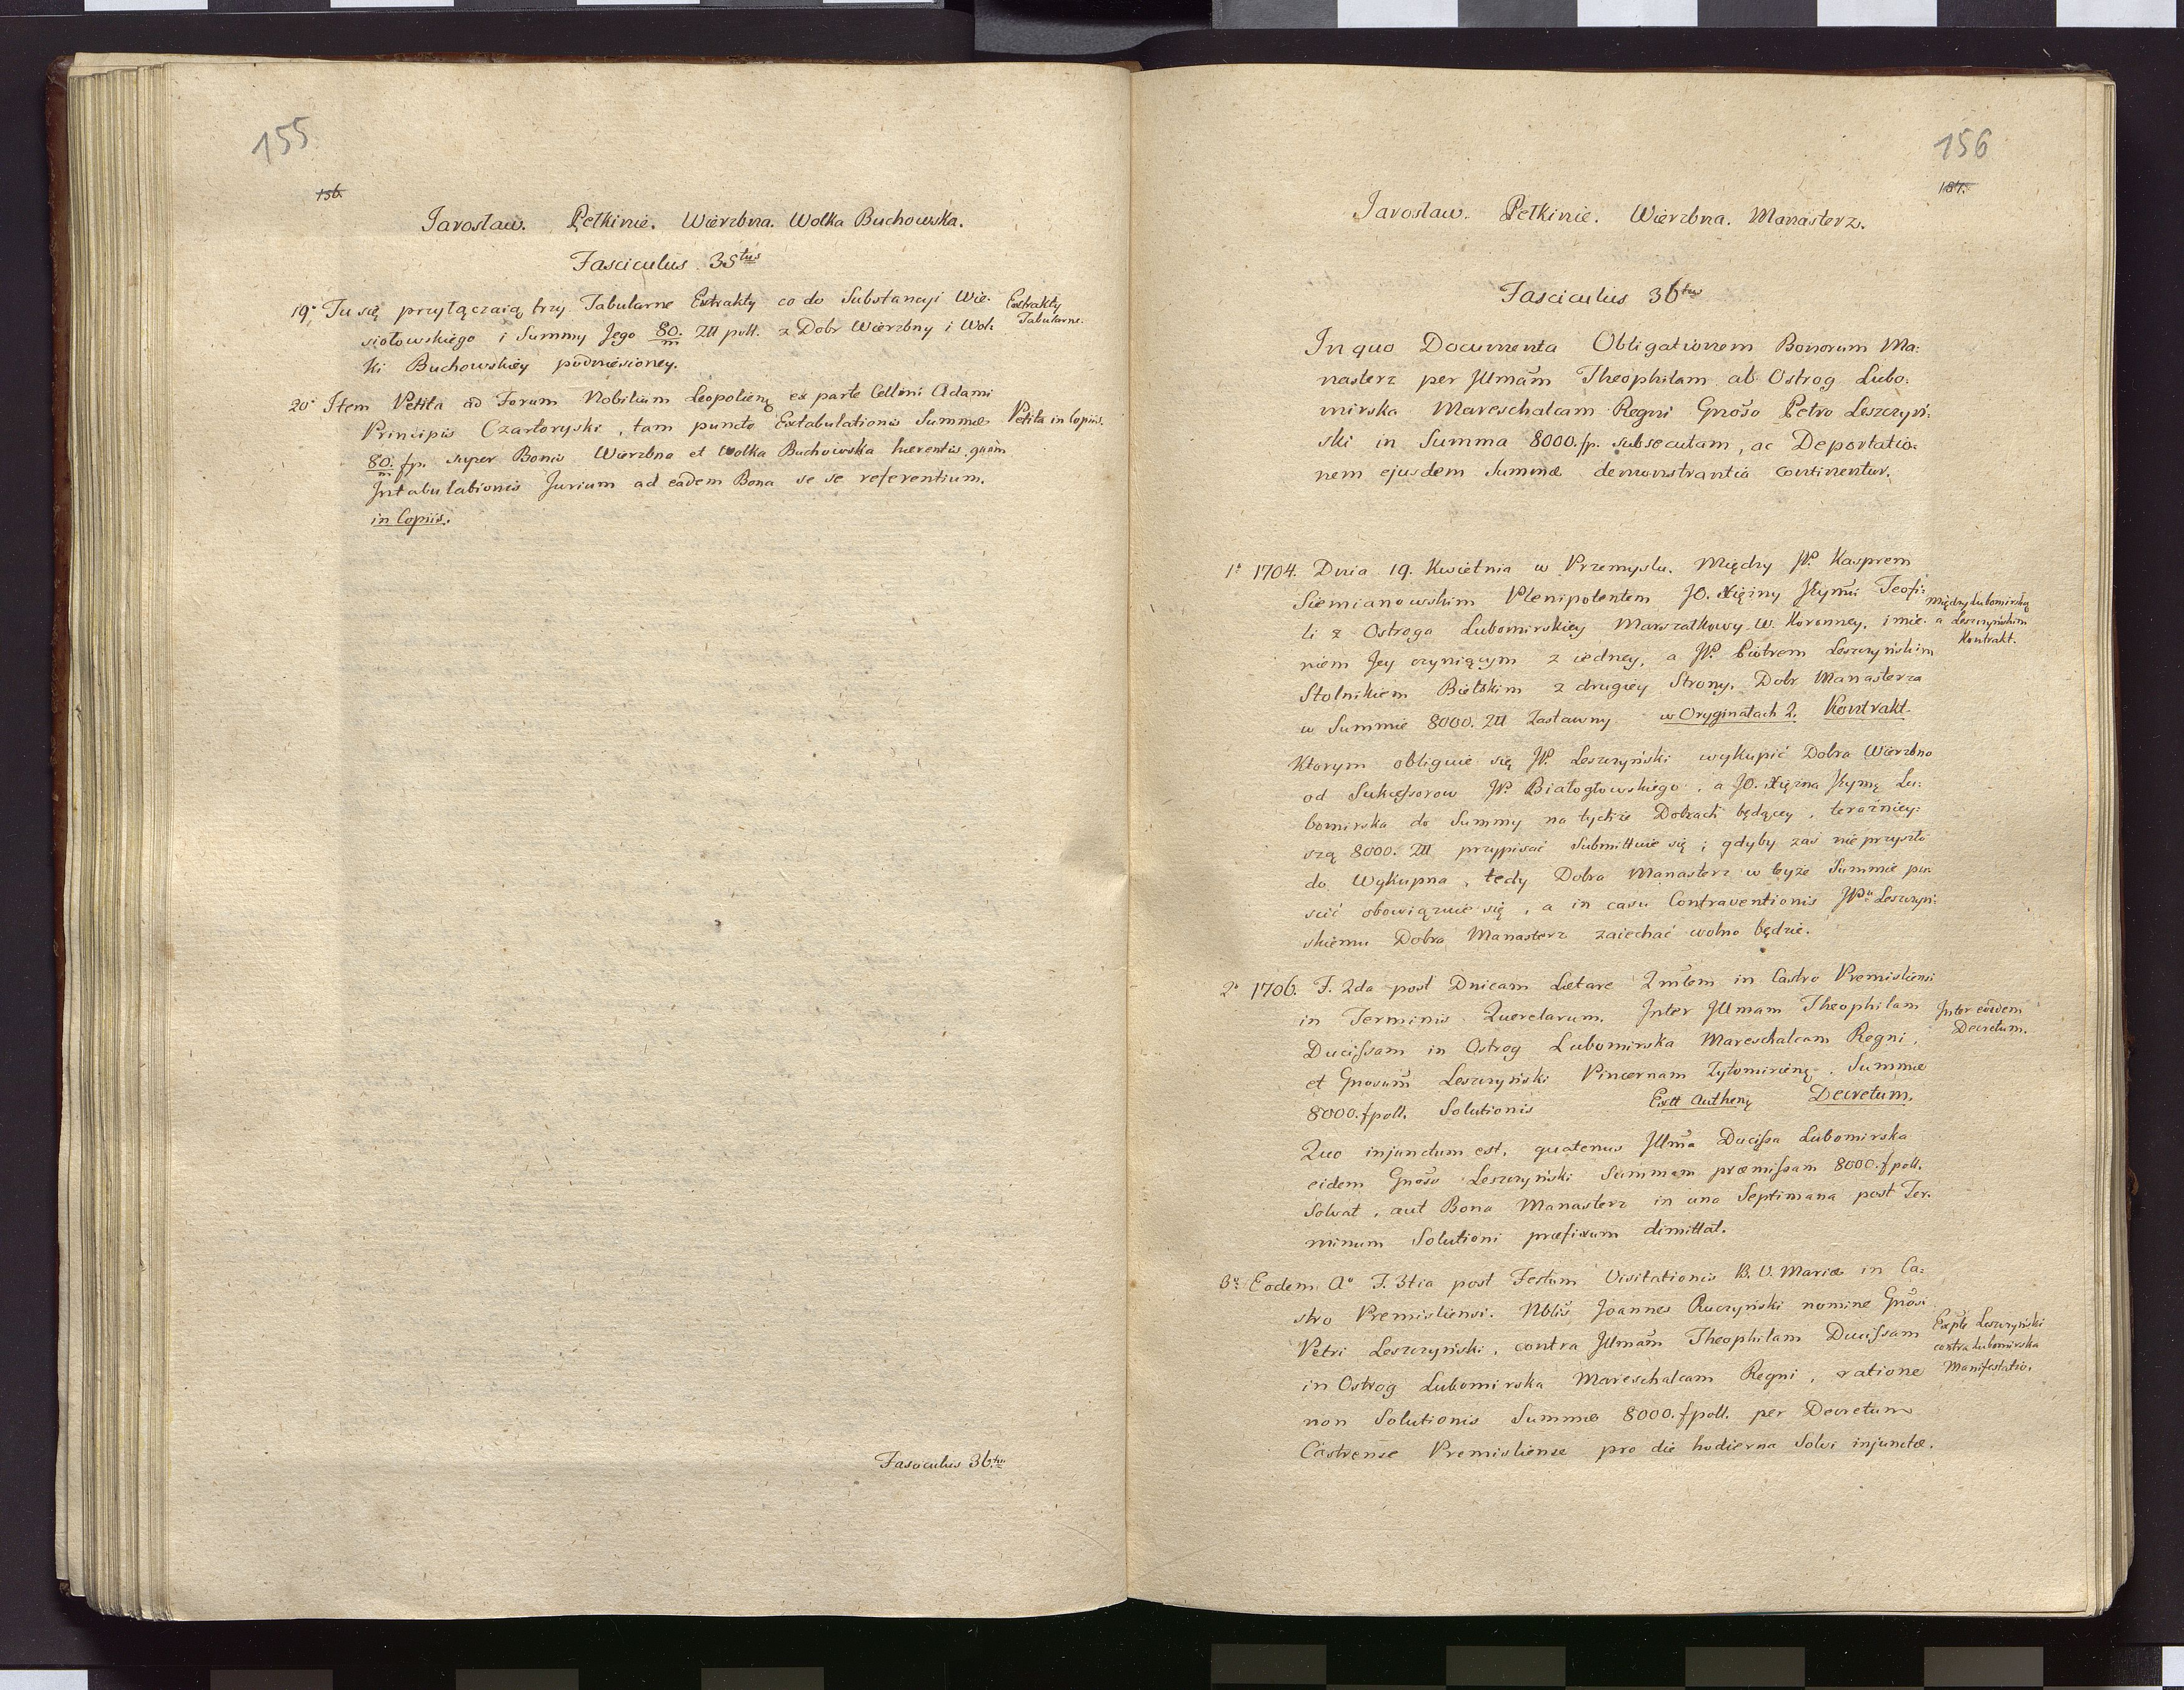 155
156.
Jarosław. Pełkinie. Wierzbna. Wolka Buchowska.
Fasciculus 35tus
19° Tu się przyłączaią trzy Tabularne Extrakty co do Substancyi Wie-
siołowskiego i Summy Jego 80/m Złł poll. z Dobr Wierzbny i Wol-
ki Buchowskiey podniesioney.
Extrakty
Tabularne.
20° Item Petita ad Forum Nobilium Leopolienę ex parte Cellmi Adami
Principis Czartoryski, tam puncto Extabulationis Summæ
80/m fp. super Bonis Wierzbna et Wolka Buchowska hærentis, quàm
Intabulationis Jurium ad eadem Bona se se referentium.
in Copiis.
Petita in Copiis.
Fasciculus 36.tus
156
157.
Jarosław. Pełkinie. Wierzbna. Manasterz.
Fasciculus 36tus
In quo Documenta Obligationem Bonorum Ma-
nasterz per Illmam Theophilam ab Ostrog Lubo-
mirska Mareschalcam Regni Gnoso Petro Leszczyń-
ski in Summa 8000. fp. subsecutam, ac Deportatio-
nem ejusdem Summæ demonstrantia continentur.
1° 1704. Dnia 19. Kwietnia w Przemyslu. Między JP. Kasprem
Siemianowskim Plenipotentem JO. Xiężny Jłymci Teofi-
li z Ostroga Lubomirskiey Marszałkowy W. Koronney, imie-
niem Jey czyniącym z iedney, a JP. Piotrem Leszczyńskim
Stolnikiem Bielskim z drugiey Strony, Dobr Manasterza
w Summie 8000. Złł Zastawny w Oryginałach 2. Kontrakt.
Między Lubomirską
a Leszczyńskim
Kontrakt.
Ktorym obliguie się JP. Leszczyński wykupić Dobra Wierzbno
od Sukcessorow JP. Białogłowskiego, a JO. Xiężna Jłymę Lu-
bomirska do Summy na tychże Dobrach będącey, teraźniey-
szą 8000. Złł przypisać submittuie się; gdyby zaś nie przyszło
do Wykupna, tedy Dobra Manasterz w teyże Summie pu-
scić obowiązuie się, a in casu Contraventionis JPu Leszczyń-
skiemu Dobra Manasterz zaiechać wolno będzie.
2° 1706. F. 2da post Dnicam Lætare Qmlem in Castro Premisliensi
in Terminis Querelarum. Inter Illmam Theophilam
Ducissam in Ostrog Lubomirska Mareschalcam Regni,
et Gnosum Leszczyński Pincernam Zytomirienę. Summæ
8000. fpoll. Solutionis Extt Authenę Decretum.
Inter eosdem
Decretum.
Quo injunctum est, quatenus Illma Ducissa Lubomirska
eidem Gnoso Leszczyński Summam præmissam 8000. fpoll.
Solvat, aut Bona Manasterz in una Septimana post Ter-
minum Solutioni præfixum dimittat.
3° Eodem A° F. 3tia post Festum Visitationis B. V. Mariæ in Ca-
stro Premisliensi. Nblis Joannes Ruczyński nomine Gnosi
Petri Leszczyński, contra Illmam Theophilam Ducissam
in Ostrog Lubomirska Mareschalcam Regni, ratione
non Solutionis Summæ 8000. fpoll. per Decretum
Castrense Premisliense pro die hodierna Solvi injunctæ.
Exple Leszczyński
contra Lubomirska
Manifestatio.